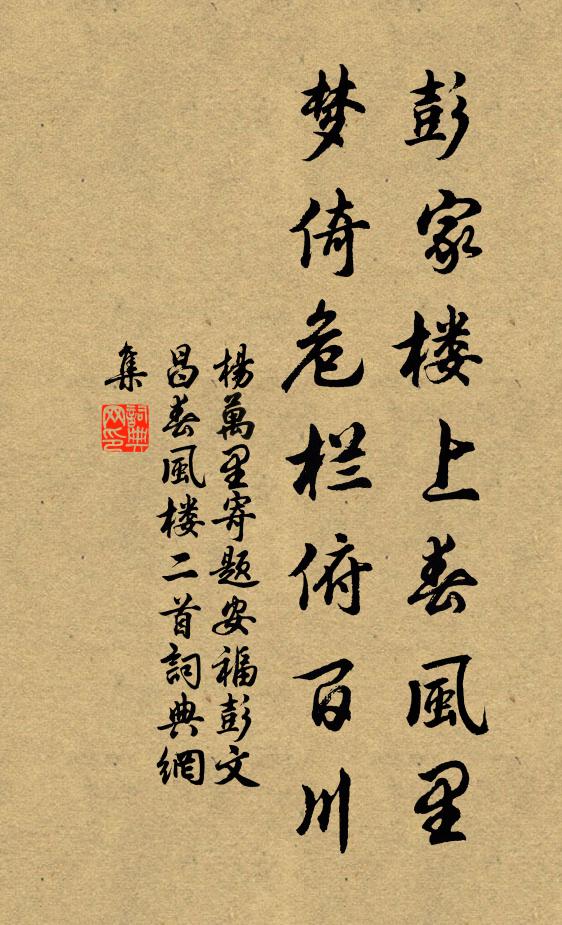 彭家楼上春風里
梦倚危栏俯百川
楊萬里寄題安福彭文
昌春風楼二首詞典網
集
詞典
网印